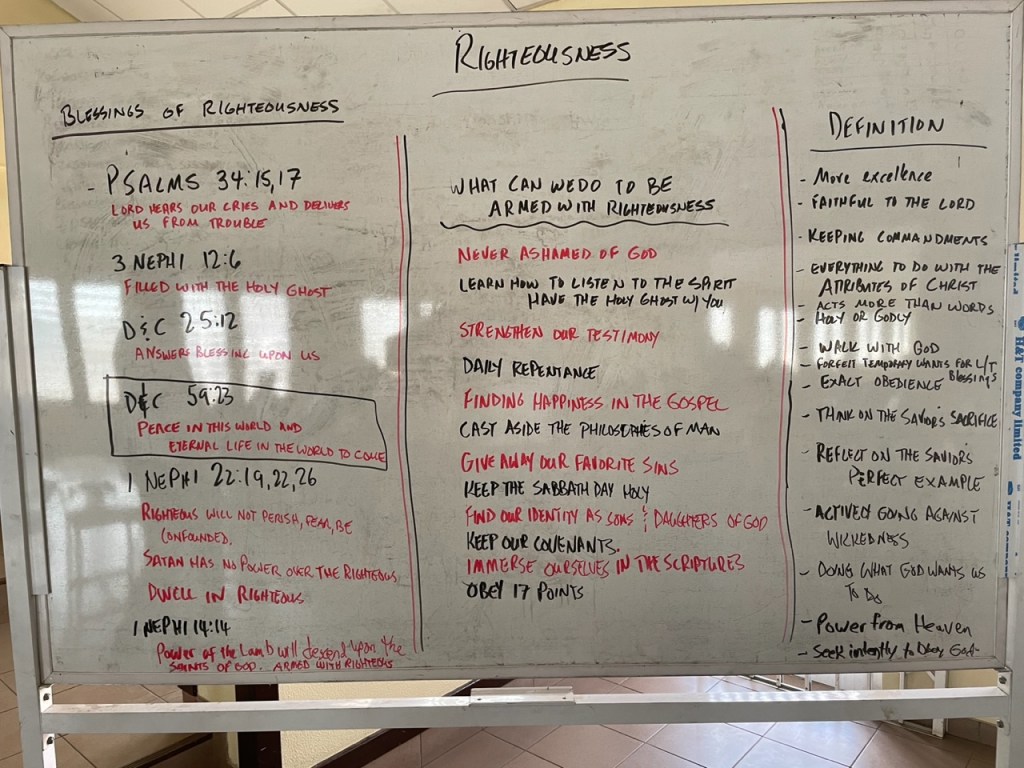 RIGHTEOUSNESS
BLESSINGS OF RIGHTEOUSNESS
- PSALMS 34:15,17
LORD HEARS OUR CRIES AND DELIVERS
US FROM TROUBLE
3 NEPHI 12:6
FILLED WITH THE HOLY GHOST
D&C 25:12
ANSWERS BLESSING UPON US
D&C 59:23
PEACE IN THIS WORLD AND
ETERNAL LIFE IN THE WORLD TO COME
1 NEPHI 22:19,22,26
RIGHTEOUS WILL NOT PERISH, FEAR, BE
CONFOUNDED.
SATAN HAS NO POWER OVER THE RIGHTEOUS
DWELL IN RIGHTEOUS
1 NEPHI 14:14
Power of the Lamb will descend upon the
SAINTS OF GOD. ARMED WITH RIGHTEOUS
WHAT CAN WE DO TO BE
ARMED WITH RIGHTEOUSNESS
NEVER ASHAMED OF GOD
LEARN HOW TO LISTEN TO THE SPIRIT
HAVE THE HOLY GHOST W/ YOU
STRENGTHEN OUR TESTIMONY
DAILY REPENTANCE
FINDING HAPPINESS IN THE GOSPEL
CAST ASIDE THE PHILOSOPHIES OF MAN
GIVE AWAY OUR FAVORITE SINS
KEEP THE SABBATH DAY HOLY
FIND OUR IDENTITY AS SONS & DAUGHTERS OF GOD
KEEP OUR COVENANTS.
IMMERSE OURSELVES IN THE SCRIPTURES
OBEY 17 POINTS
DEFINITION
- More excellence
- FAITHFUL TO THE LORD
- KEEPING COMMANDMENTS
- EVERYTHING TO DO WITH THE
ATTRIBUTES OF CHRIST
- ACTS MORE THAN WORDS
- HOLY OR GODLY
- WALK WITH GOD
- FORFEIT TEMPORARY WANTS FOR L/T
BLESSINGS
- EXACT OBEDIENCE
- THINK ON THE SAVIOR'S SACRIFICE
- REFLECT ON THE SAVIOR'S
PERFECT EXAMPLE
- ACTIVELY GOING AGAINST
WICKEDNESS
- DOING WHAT GOD WANTS US
TO DO
- Power from Heaven
- Seek intently to Obey God
H&T company limited